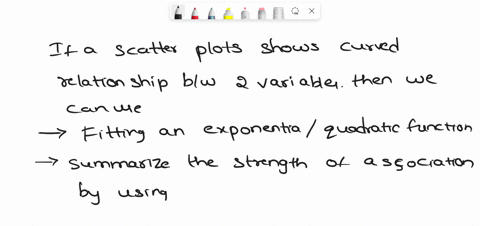 If a scatter plots shows curved
relationship b/w 2 variables. then we
can use
→ Fitting an exponential/quadratic function
→ summarize the strength of association
by using